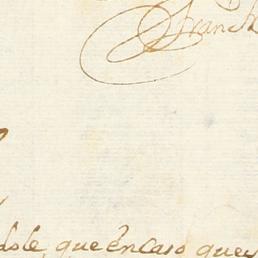 Franc
dole, que en caso que